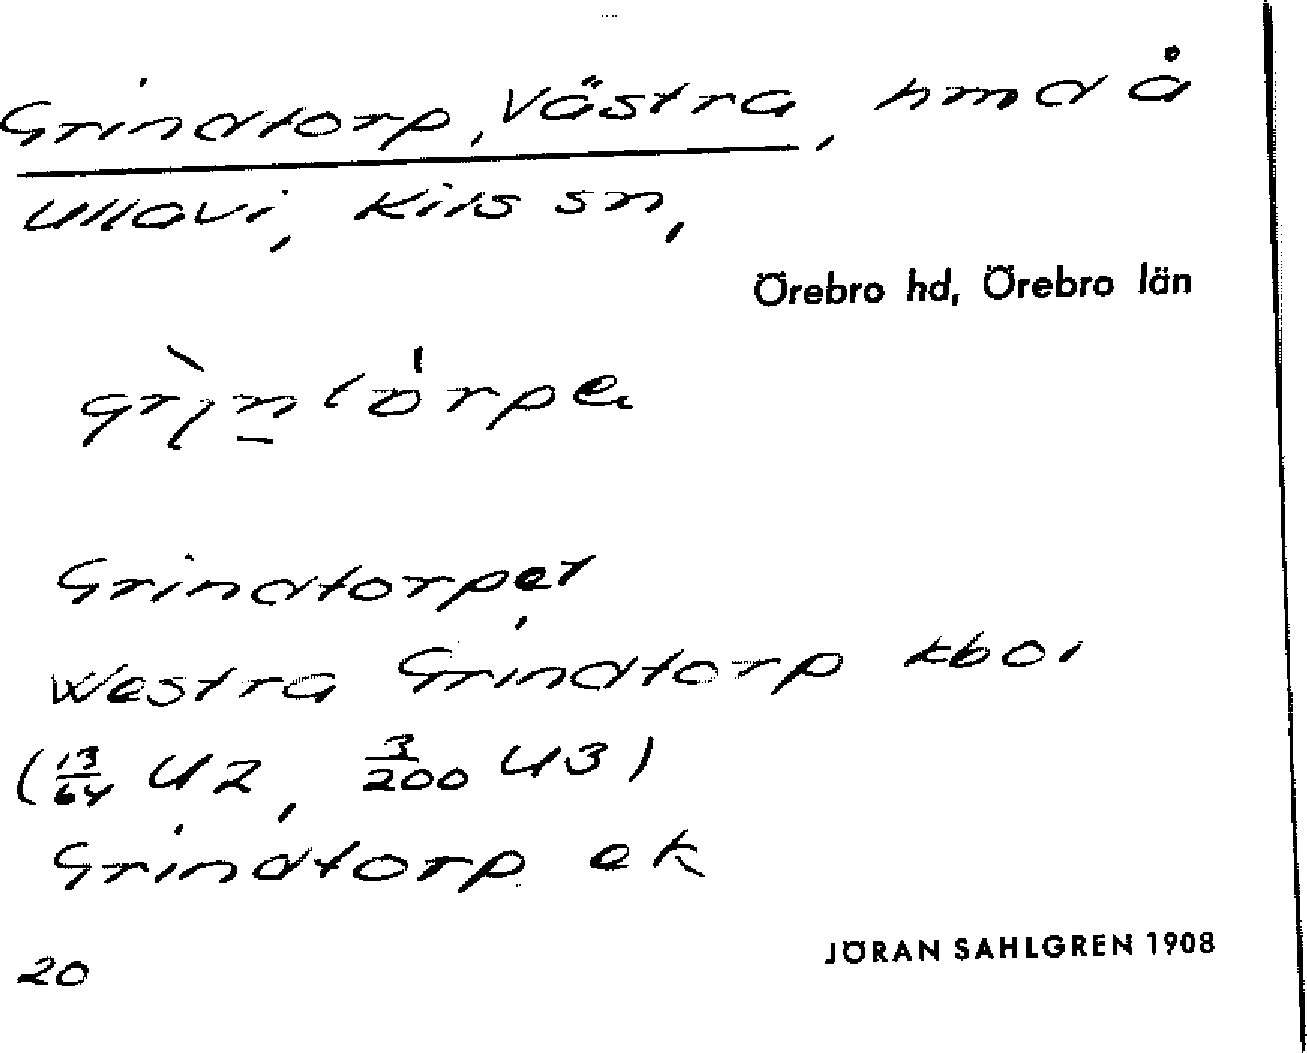 Grindtorp, Västra, hmd å
Ullavi, Kils sn,
Örebro hd, Örebro län
Grindtorpet
Westra Grindtorp kboi
(13/64 U2, 3/200 U3)
Grindtorp ek
20
JÖRAN SAHLGREN 1908